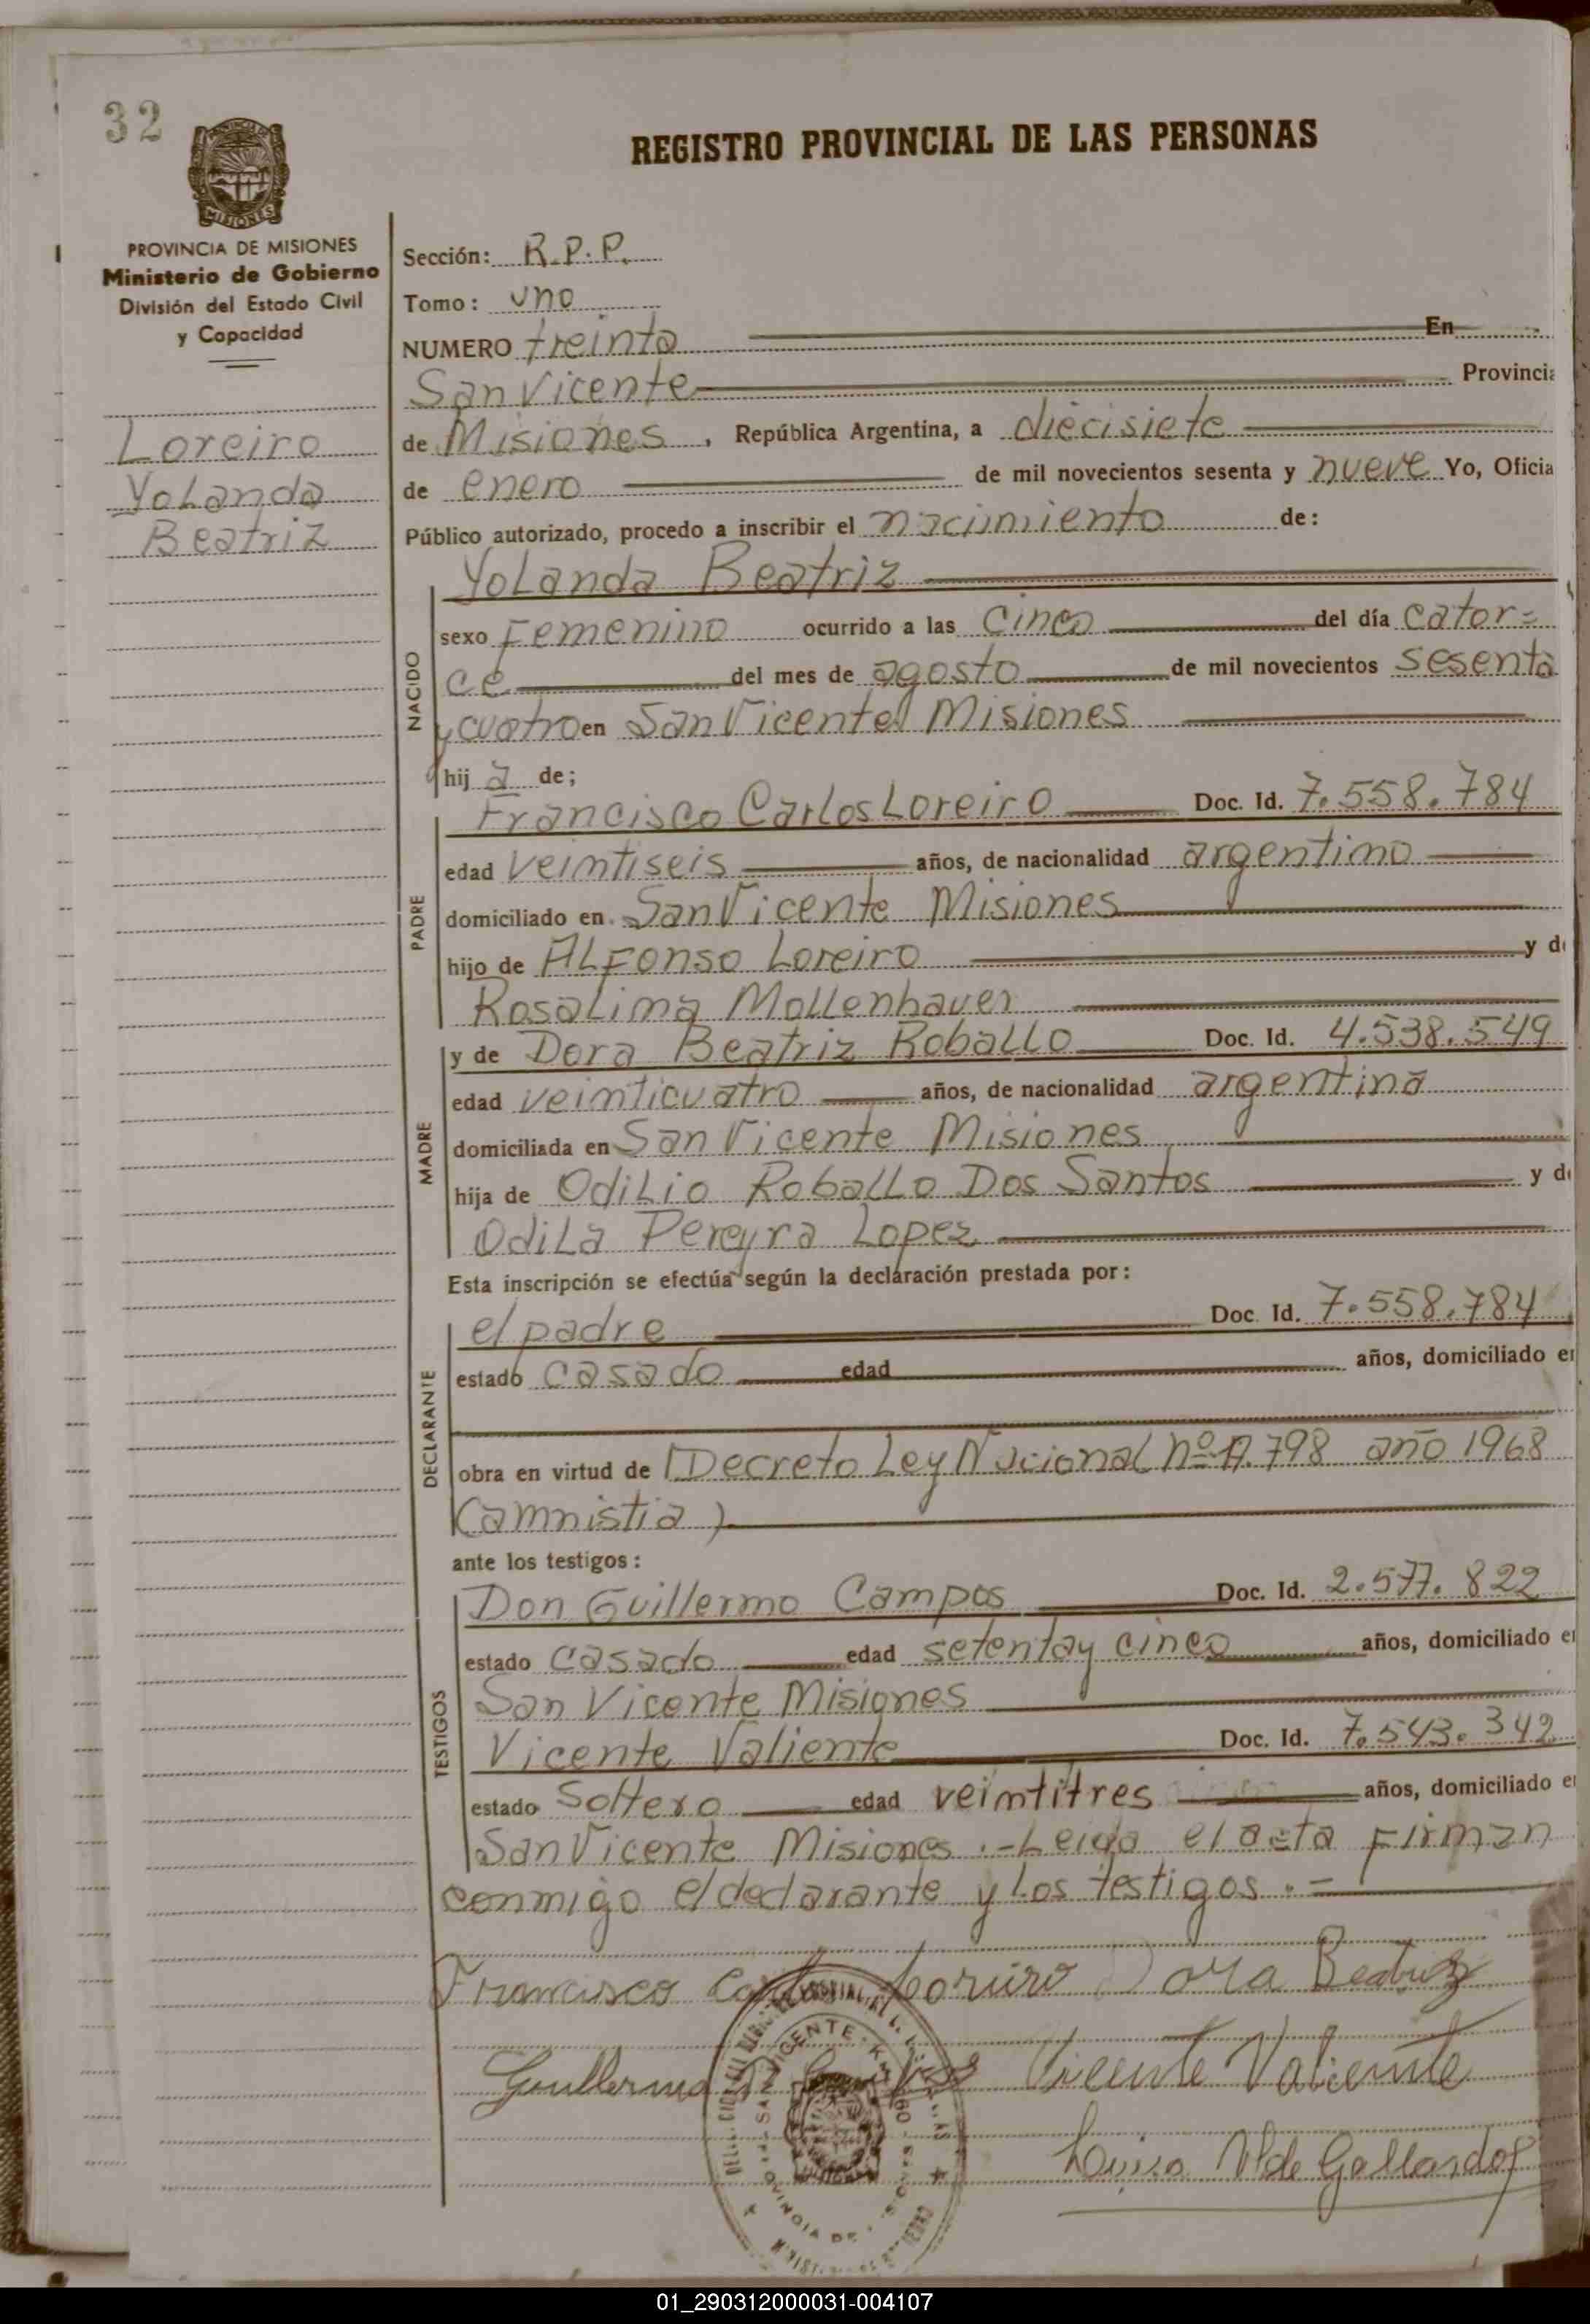 32
REGISTRO PROVINCIAL DE LAS PERSONAS
MISIONES
PROVINCIA DE MISIONES
Ministerio de Gobierno
División del Estado Civil
y Capacidad
Loreiro
Yolanda
Beatriz
Sección: R.P.P.
Tomo: uno
NUMERO treinta En
San Vicente Provincia
de Misiones, República Argentina, a diecisiete
de enero de mil novecientos sesenta y nueve Yo, Oficia
Público autorizado, procedo a inscribir el nacimiento de:
NACIDO
Yolanda Beatriz
sexo Femenino ocurrido a las cinco del día cator=
ce del mes de agosto de mil novecientos sesenta
y cuatro en San Vicente Misiones
hij a de;
PADRE
Francisco Carlos Loreiro Doc. Id. 7.558.784
edad veintiseis años, de nacionalidad argentino
domiciliado en San Vicente Misiones
hijo de Alfonso Loreiro y de
Rosalima Mollenhauer
MADRE
y de Dora Beatriz Roballo Doc. Id. 4.538.549
edad veinticuatro años, de nacionalidad argentina
domiciliada en San Vicente Misiones
hija de Odilio Roballo Dos Santos y de
Odila Pereyra Lopez
Esta inscripción se efectúa según la declaración prestada por:
DECLARANTE
el padre Doc. Id. 7.558.784
estado casado edad años, domiciliado en
obra en virtud de Decreto Ley Nacional nº 17.798 año 1968
(amnistia)
ante los testigos:
TESTIGOS
Don Guillermo Campos Doc. Id. 2.577.822
estado casado edad setenta y cinco años, domiciliado en
San Vicente Misiones
Vicente Valiente Doc. Id. 7.543.342
estado soltero edad veintitres años, domiciliado en
San Vicente Misiones .- Leida el acta firman
conmigo el declarante y los testigos .-
Francisco Carlos Loreiro Dora Beatriz
Guillermo Vicente Valiente
SAN VICENTE
Luisa de Gallardo
01_290312000031-004107